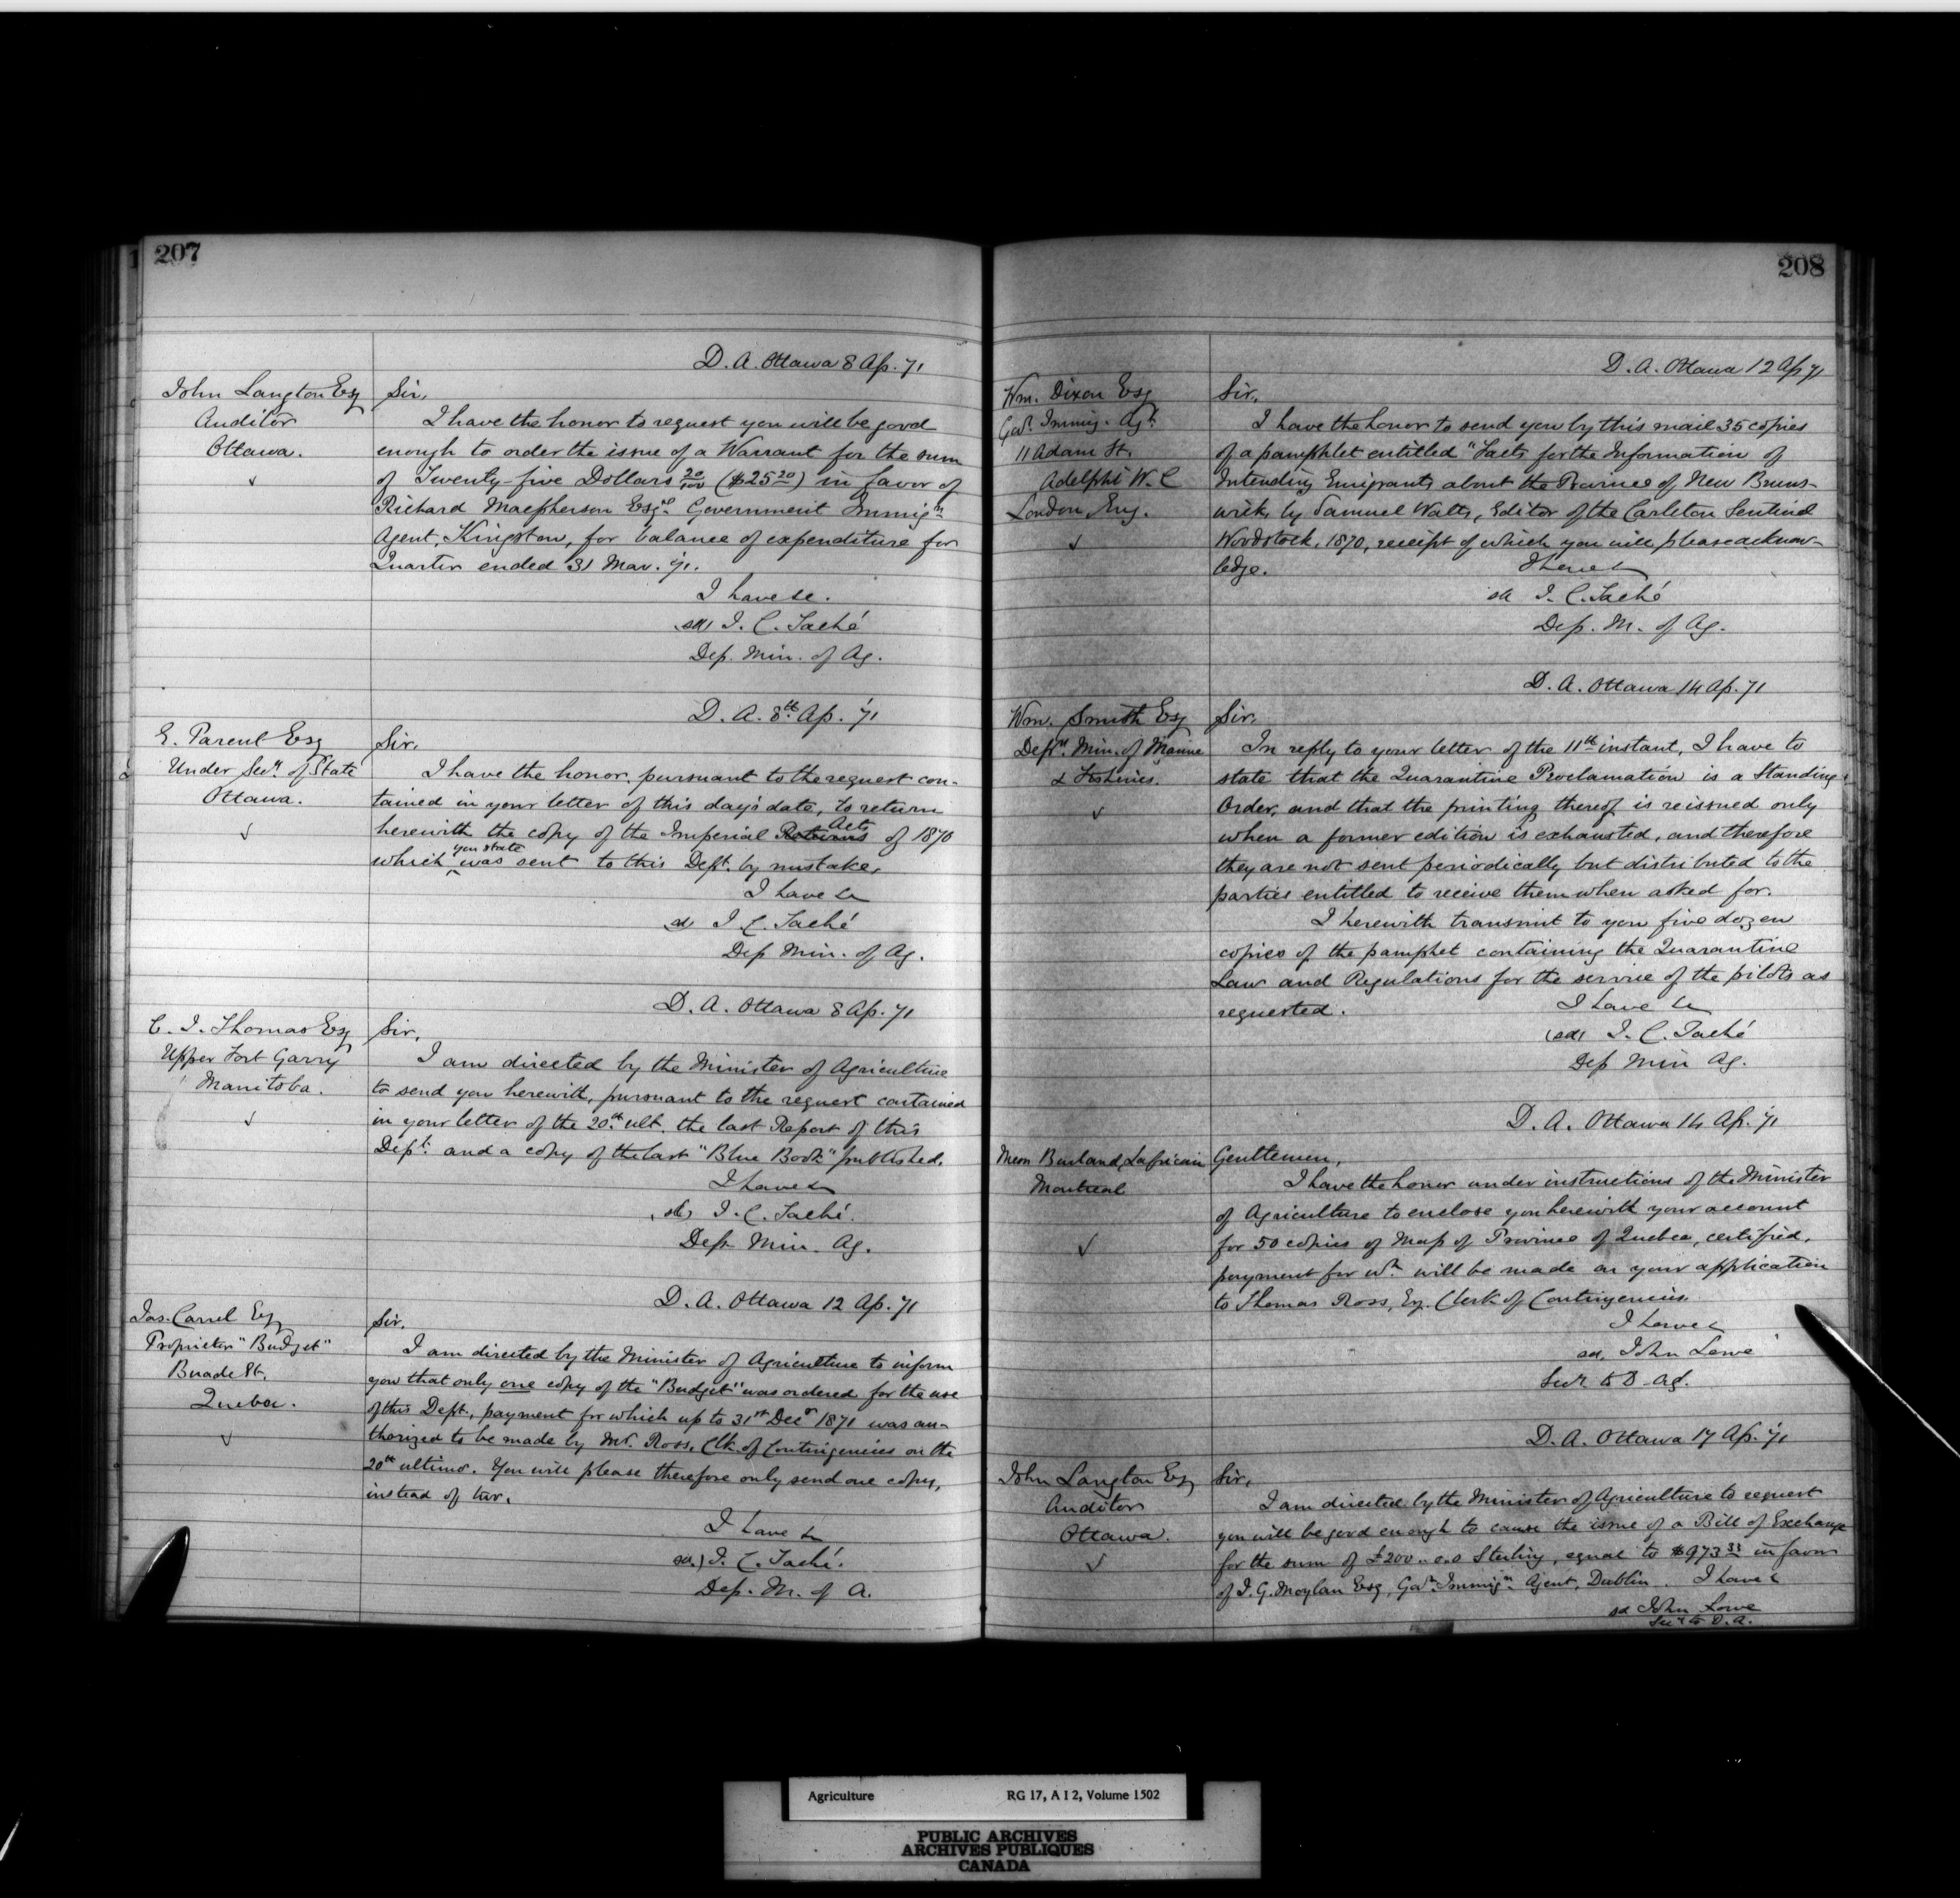 207
D. A. Ottawa 8 Ap. 71
John Langton Esq
Auditor
Ottawa.
Sir,
I have the honor to request you will be good
enough to order the issue of a Warrant for the sum
of Twenty-five Dollars 20/100 ($25 20) in favor of
Richard Macpherson Esqre. Government Immign
Agent, Kingston, for balance of expenditure for
Quarter ended 31 Mar. 71.
I have &c.
sd) J. C. Taché
Dep. Min. of Ag.
D. A. 8th Ap. 71
E. Parent Esq
Under Secy. of State
Ottawa.
Sir,
I have the honor, pursuant to the request con-
tained in your letter of this day's date, to return
herewith the copy of the Imperial Returns Acts of 1870
which you state was sent to this Dept. by mistake,
I have &c
sd) J. C. Taché
Dep Min. of Ag.
D. A. Ottawa 8 Ap. 71
C. J. Thomas Esq
Upper Fort Garry
Manitoba.
Sir,
I am directed by the Minister of Agriculture
to send you herewith, pursuant to the request contained
in your letter of the 20th ult. the last Report of this
Dept. and a copy of the last "Blue Book" published.
I have &c
sd) J. C. Taché.
Dep. Min. Ag.
D. A. Ottawa 12 Ap. 71
Jas. Carrel Esq
Proprietor "Budget"
Buade St.
Quebec.
Sir.
I am directed by the Minister of Agriculture to inform
you that only one copy of the "Budget" was ordered for the use
of this Dept, payment for which up to 31st Decr 1871 was au-
thorized to be made by Mr. Ross, Clk. of Contingencies on the
20th ultimo. You will please therefore only send one copy,
instead of two.
I have &c
sd.) J. C. Taché.
Dep. M. of A.
208
D. A. Ottawa 12 Ap 71
Wm. Dixon Esq
Govt. Immig. Agt.
11 Adam St.
Adelphi W. C
London Eng.
Sir,
I have the honor to send you by this mail 35 copies
of a pamphlet entitled "Facts for the Information of
Intending Emigrants about the Province of New Bruns-
wick, by Samuel Watts, Editor of the Carleton Sentinel
Woodstock, 1870, receipt of which you will please acknow-
ledge.
I have &c
sd J. C. Taché
Dep. M. of Ag.
D. A. Ottawa 14 Ap. 71
Wm. Smith Esq
Depy. Min. of Marine
& Fisheries.
Sir,
In reply to your letter of the 11th instant, I have to
state that the Quarantine Proclamation is a Standing
Order, and that the printing thereof is reissued only
when a former edition is exhausted, and therefore
they are not sent periodically but distributed to the
parties entitled to receive them when asked for.
I herewith transmit to you five dozen
copies of the pamphet containing the Quarantine
Law and Regulations for the service of the pilots as
requested.
I have &c
(sd) J. C. Taché
Dep Min Ag.
D. A. Ottawa 14 Ap. 71
Messrs Burland, Lafricain
Montreal
Gentlemen,
I have the honor under instructions of the Minister
of Agriculture to enclose you herewith your account
for 50 copies of Map of Province of Quebec, certified,
payment for wh. will be made on your application
to Thomas Ross, Esq. Clerk of Contingencies.
I have &c
sd. John Lowe
Secy to D. Ag.
D. A. Ottawa 17 Ap. 71
John Langton Esq
Auditor
Ottawa.
Sir,
I am directed by the Minister of Agriculture to request
you will be good enough to cause the issue of a Bill of Exchange
for the sum of £200..0.0 Sterling, equal to $973 33 in favor
of J. G. Moylan Esq, Govt. Immign. Agent, Dublin. I have &
sd John Lowe
Secy to D. A.
Agriculture RG 17, A I 2, Volume 1502
PUBLIC ARCHIVES
ARCHIVES PUBLIQUES
CANADA